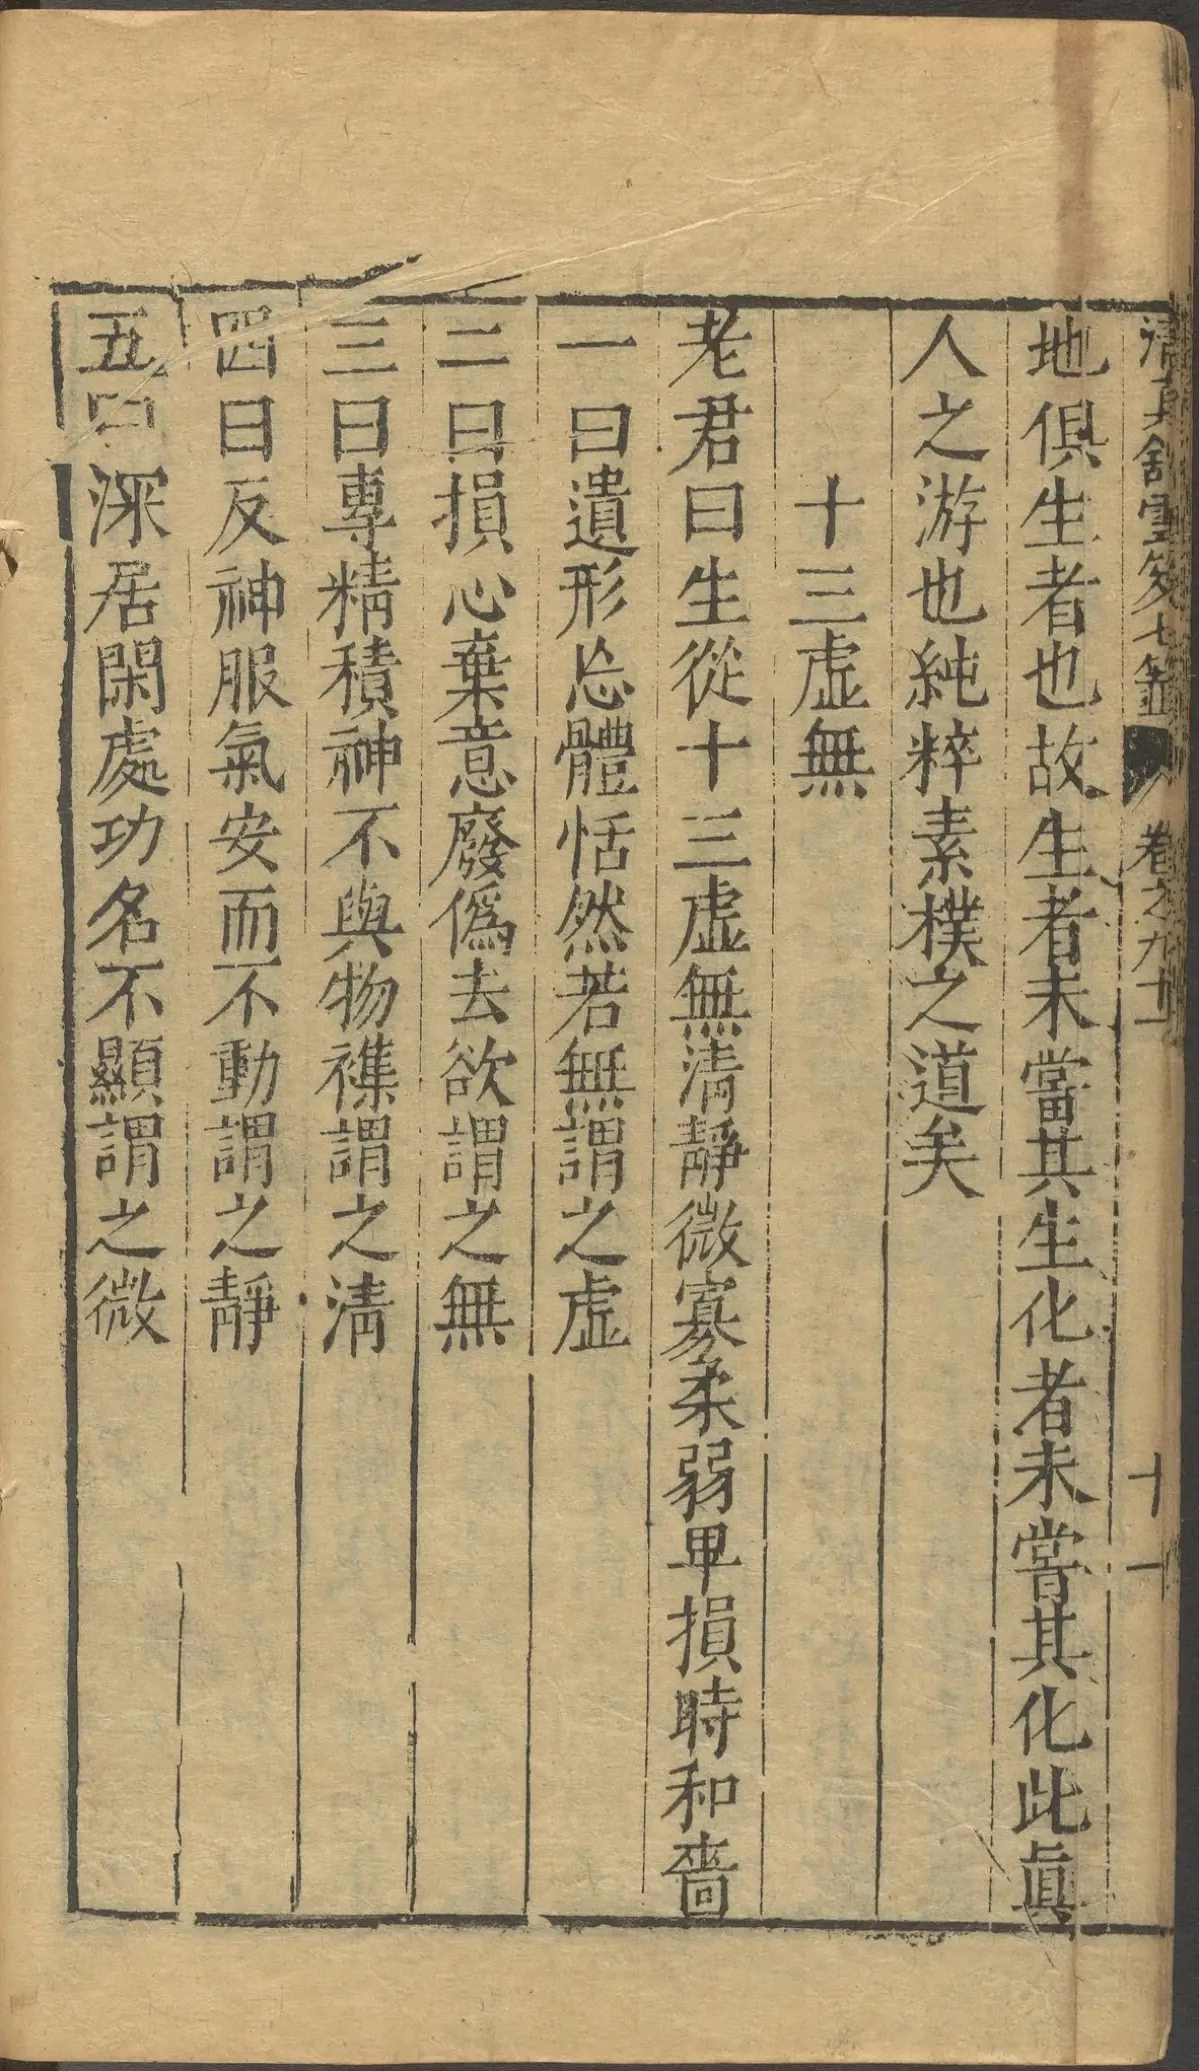 清真舘雲笈七籖 卷之九十一 十一
地俱生者也故生者未當其生化者未嘗其化此眞
人之游也純粹素樸之道矣
十三虛無
老君曰生從十三虛無淸靜微寡柔弱卑損時和嗇
一曰遺形忘體恬然若無謂之虛
二曰損心棄意廢僞去欲謂之無
三曰專精積神不與物襍謂之淸
四曰反神服氣安而不動謂之靜
五曰深居閑處功名不顯謂之微